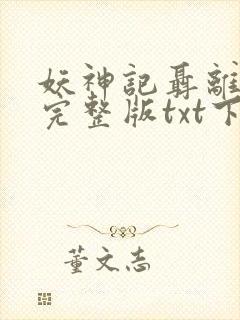 妖神記聶離
完整版txt下
董文志